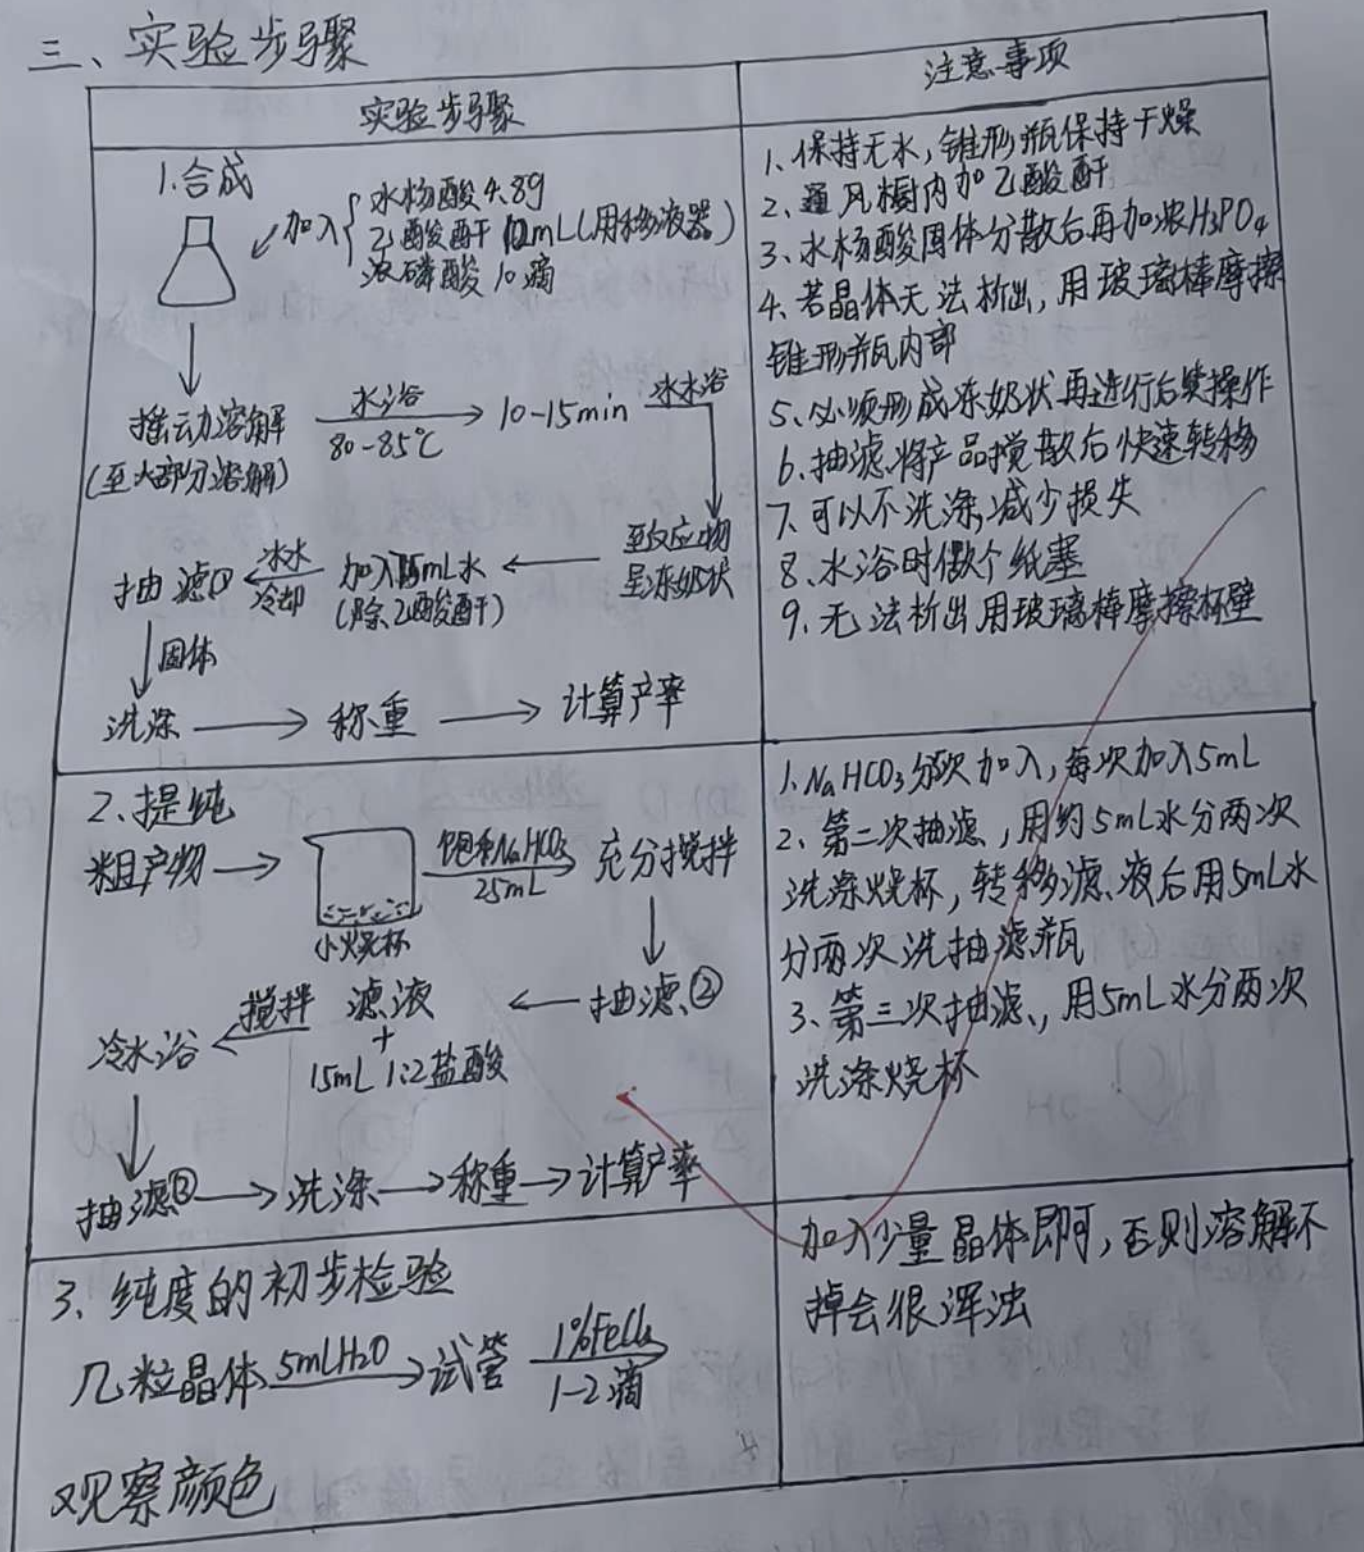 三、实验步骤
实验步骤
注意事项
1.合成
加入
水杨酸4.8g
乙酸酐12mL(用移液器)
浓磷酸10滴
摇动溶解
(至大部分溶解)
水浴
80-85℃
10-15min
冰水浴
至反应物
呈冻奶状
加入15mL水
(除乙酸酐)
冰水
冷却
抽滤①
固体
洗涤
称重
计算产率
1、保持无水,锥形瓶保持干燥
2、通风橱内加乙酸酐
3、水杨酸固体分散后再加浓H3PO4
4、若晶体无法析出,用玻璃棒摩擦
锥形瓶内部
5、必须形成冻奶状再进行后续操作
6、抽滤、将产品搅散后快速转移
7、可以不洗涤,减少损失
8、水浴时做个纸塞
9、无法析出用玻璃棒摩擦杯壁
2、提纯
粗产物
小烧杯
饱和NaHCO3
25mL
充分搅拌
抽滤②
滤液
+
15mL 1:2盐酸
搅拌
冷水浴
抽滤③
洗涤
称重
计算产率
1、NaHCO3分次加入,每次加入5mL
2、第二次抽滤,用约5mL水分两次
洗涤烧杯,转移滤液后用5mL水
分两次洗抽滤瓶
3、第三次抽滤,用5mL水分两次
洗涤烧杯
3、纯度的初步检验
几粒晶体
5mLH2O
试管
1%FeCl3
1-2滴
观察颜色
加入少量晶体即可,否则溶解不
掉会很浑浊